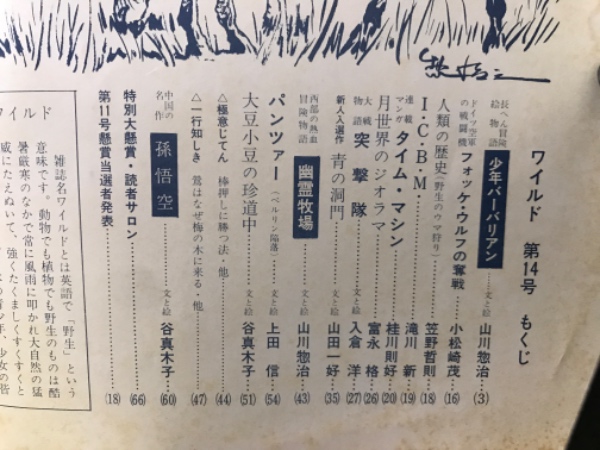 ワイルド 第14号 もくじ
長へん冒険絵物語 少年バーバリアン……文と絵 山川惣治 (3)
ドイツ空軍の戦闘機 フォッケ・ウルフの奪戦……小松崎茂 (16)
人類の歴史(野生のウマ狩り)……笠野哲則 (18)
I・C・B・M・……滝川新 (19)
連載マンガ タイム・マシン……桂川則好 (20)
月世界のジオラマ……富永格 (26)
大戦物語 突撃隊……文と絵 入倉洋 (27)
新人入選作 青の洞門……文と絵 山田一好 (35)
西部の熱血冒険物語 幽霊牧場……文と絵 山川惣治 (43)
パンツァー(ベルリン陥落)……文と絵 上田信 (54)
大豆小豆の珍道中……文と絵 谷真木子 (51)
△極意じてん 棒押しに勝つ法・他……(44)
△一行知しき 鶯はなぜ梅の木に来る・他……(47)
中国の名作 孫悟空……文と絵 谷真木子 (60)
特別大懸賞・読者サロン……(66)
第11号懸賞当選者発表……(18)
ワイルド
雑誌名ワイルドとは英語で「野生」という
意味です。動物でも植物でも野生のものは酷
暑厳寒のなかで常に風雨に叩かれ大自然の猛
威にたえぬいて、強くたくましくすくすくと